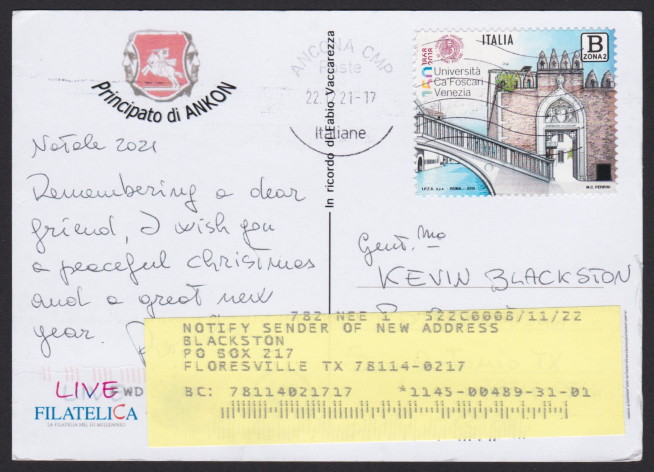 Principato di ANKON
Natale 2021
Remembering a dear
friend, I wish you
a peaceful christimas
and a great new
year.
LIVE
FILATELICA
LA FILATELIA NEL III MILLENNIO
FWD
In ricordo di Fabio Vaccarezza
ANCONA CMP
Poste
22. 21-17
Italiane
ITALIA
B
ZONA 2
Università
Ca'Foscari
Venezia
I.P.Z.S. S.p.A. ROMA
M.C. PERRINI
Gent.mo
KEVIN BLACKSTON
782 NEE 1 522C0008/11/22
NOTIFY SENDER OF NEW ADDRESS
BLACKSTON
PO BOX 217
FLORESVILLE TX 78114-0217
BC: 78114021717 *1145-00489-31-01